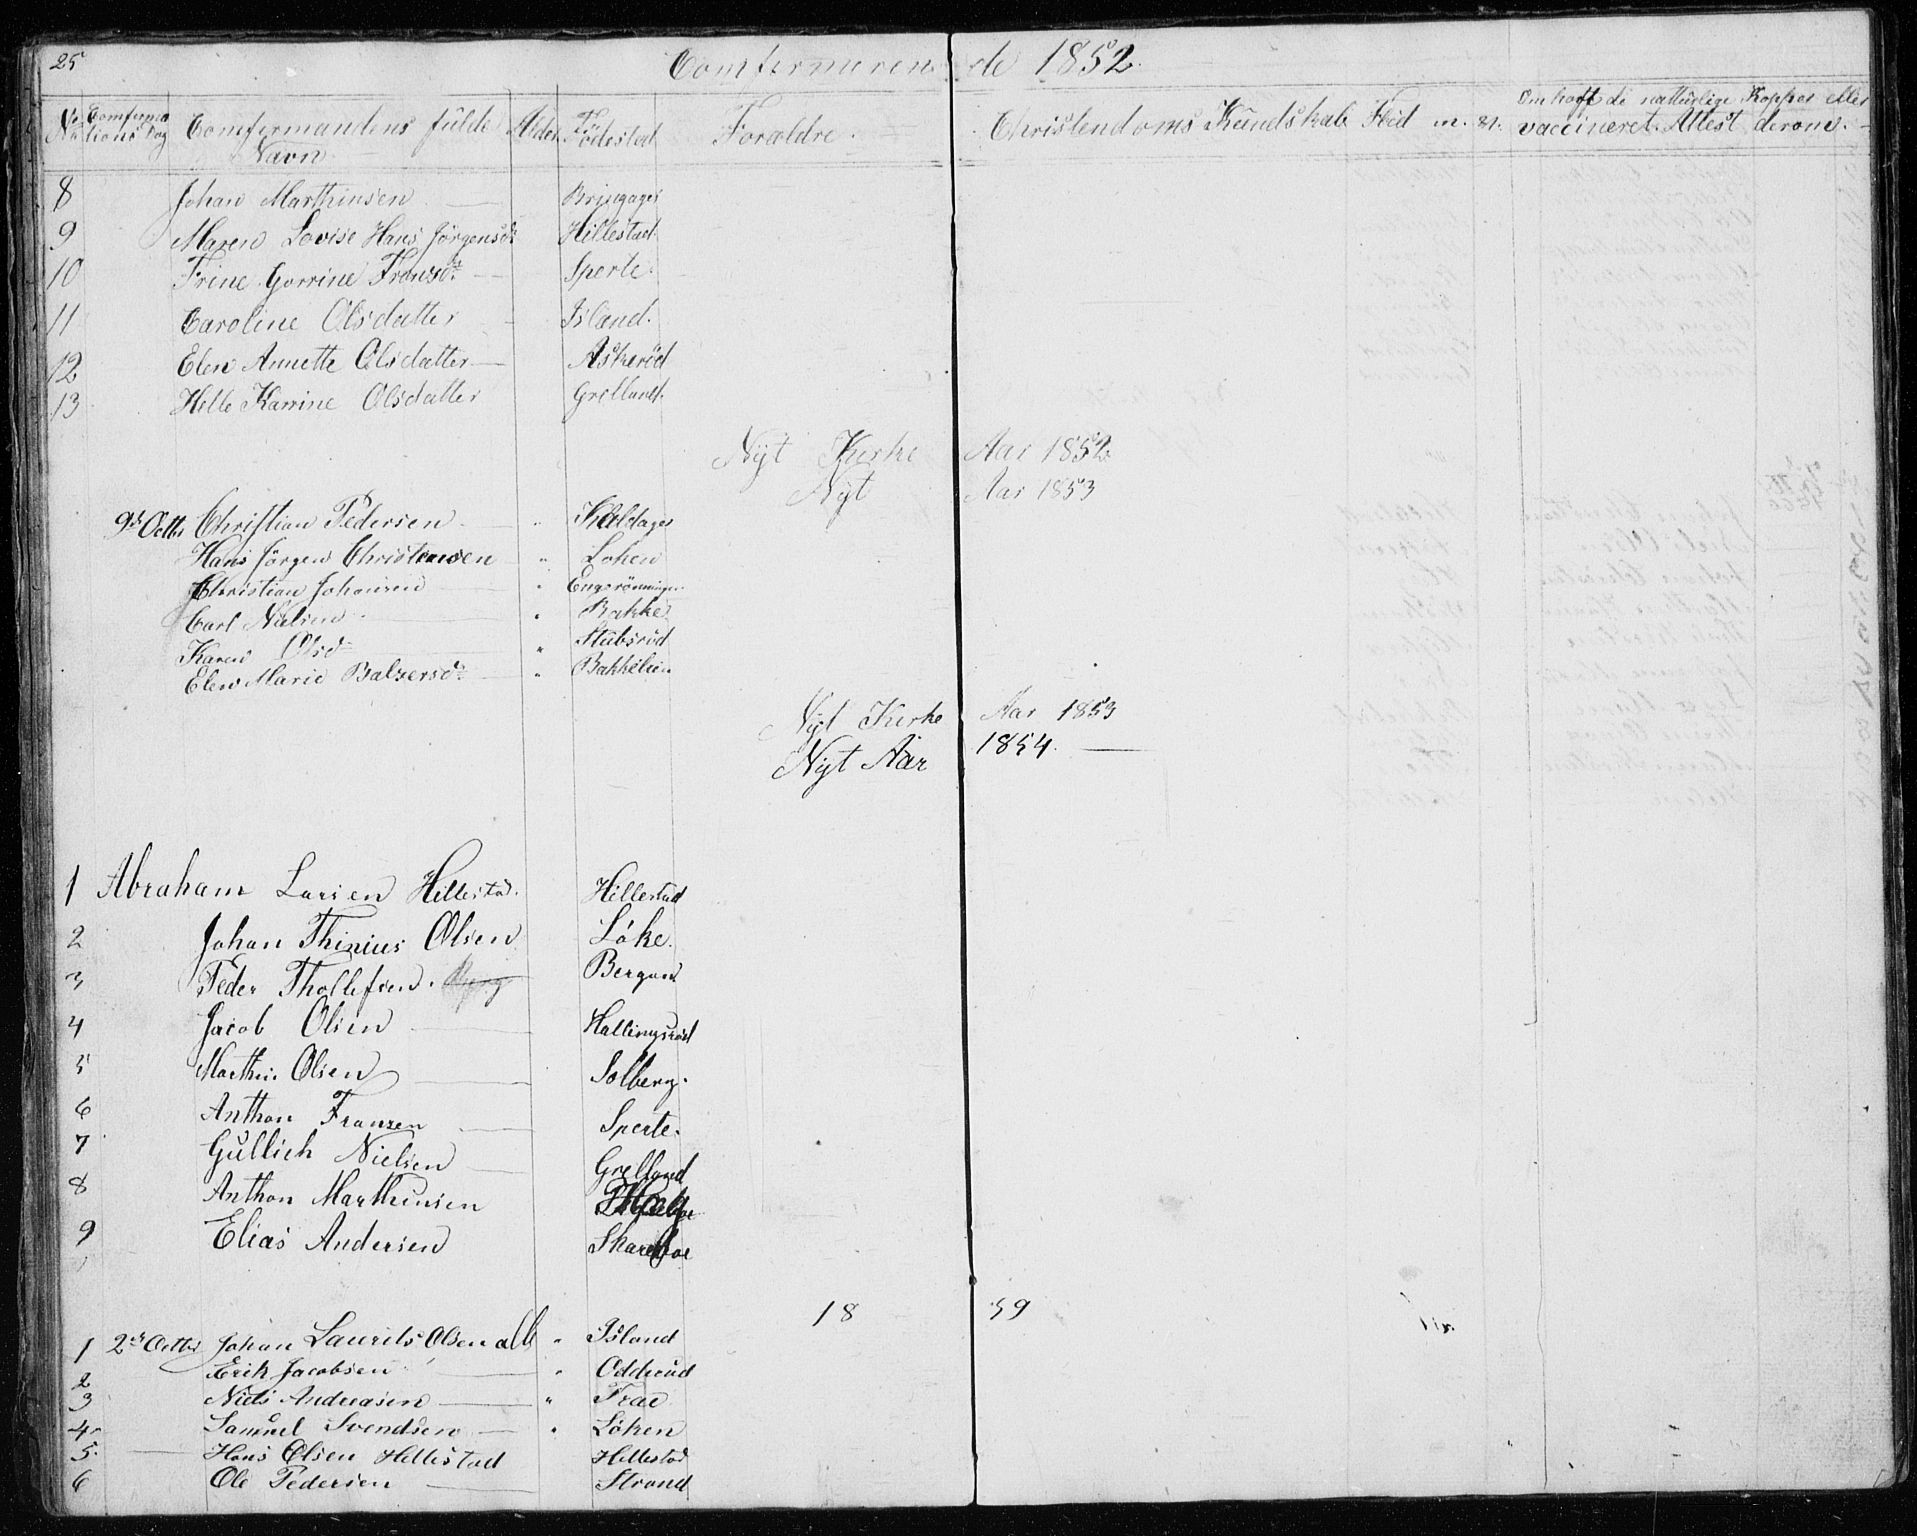 25 Comfermeren de 1852.
No Comfermationsdag Comfermandens fulde Navn Alder Fødestad Foraldre. Christendoms Kundskab Flid Om haft de naturlige Kopper eller vaccineret. Attest derom.
8 Johan Marthinsen Bringager
9 Maren Lovise Hans Jørgensd: Hillestad.
10 Trine Gorrine Fransd: Sperte.
11 Caroline Olsdatter Island.
12 Elen Annette Olsdatter Askerød
13 Helle Karrine Olsdatter Grelland.
Nyt Kirke Aar 1852
Nyt Aar 1853
9de Octbr Christian Pedersen Kaldager
Hans Jørgen Christensen " Loken
Christian Johansen " Engerønningen
Carl Nielsen " Bakke
Karen Olsd " Stubsrød
Elen Marie Balzersd: " Bakkelien
Nyt Kirke Aar 1853
Nyt Aar 1854.
1 Abraham Larsen Hillestad. Hillestad
2 Johan Thinius Olsen Løke.
3 Peder Thollefsen. Bergan
4 Jacob Olsen Hallingsrød
5 Marthin Olsen Solberg.
6 Anthon Franzen Sperte.
7 Gullich Nielsen Grelland
8 Anthon Marthinsen
9 Elias Andersen
18 59
1 2den Octbr Johan Laurits Olsen " Island
2 Erik Jacobsen " Odderud
3 Niels Andreasen " Trae
4 Samuel Svendsen " Løken
5. Hans Olsen Hillestad Hillestad
6 Ole Pedersen Strand